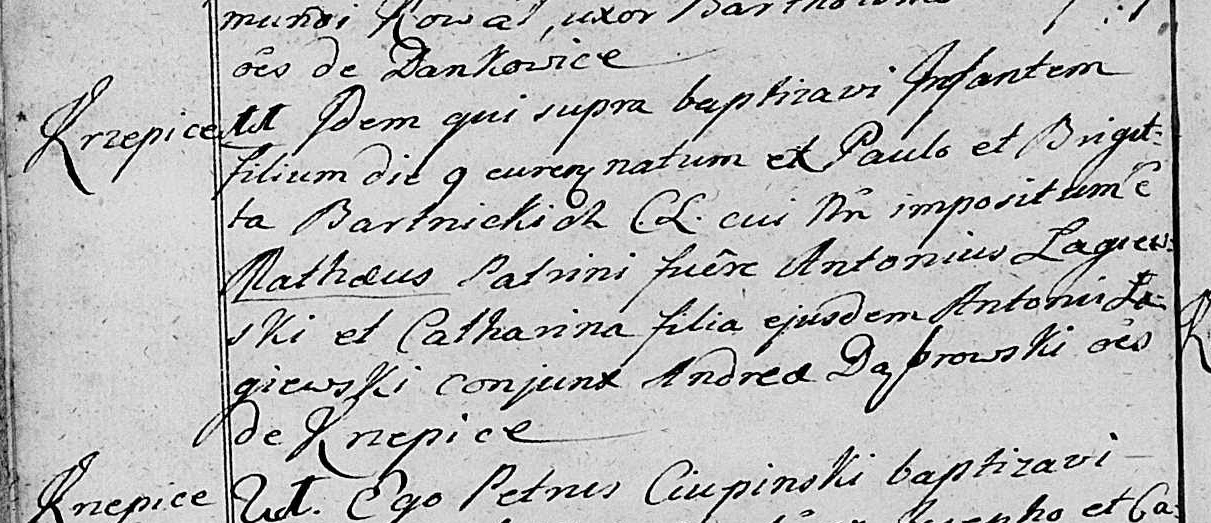 mundi Kowal, uxor
oẽs de Dankowice
Krzepice Ut Idem qui supra baptizavi Infantem
filium die 9 curen natum ex Paulo et Brigit=
ta Bartnickich C.L. cui Nñ impositum ẽ
Mathæus Patrini fuêre Antonius Lagiew=
ski et Catharina filia ejusdem Antonii La=
giewski conjunx Andreæ Dąbrowski oẽs
de Krzepice
Krzepice Ut. Ego Petrus Ciupinski baptizavi
Josepho et Ca=